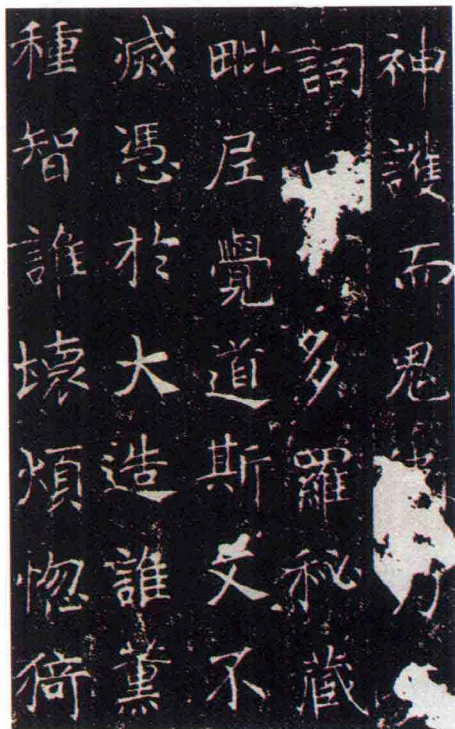 神護而鬼力
詞多羅秘藏
毗尼覺道斯文不
滅憑於大造誰薰
種智誰壞煩惱猗